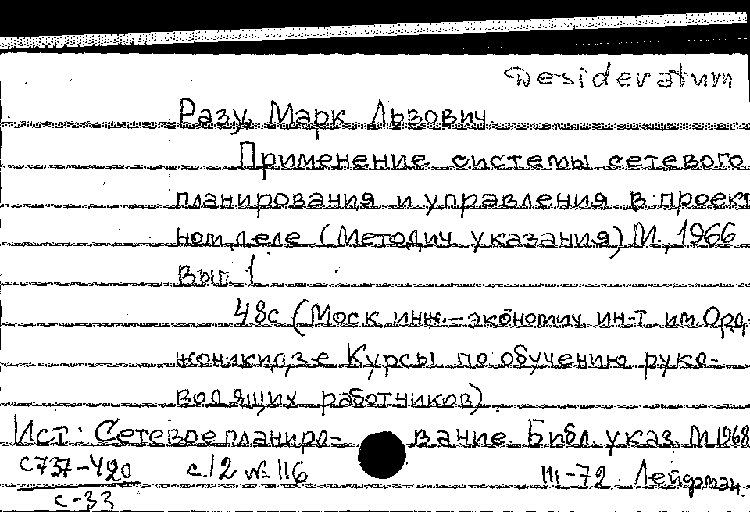 Desideratum
Разу, Марк Львович
Применение системы сетевого
планирования и управления в проект
ном деле (Методич указания) М, 1966
Вып 1
48с (Моск инж.-экономич ин-т им Орд-
жоникидзе Курсы по обучению руко-
водящих работников)
Ист: Сетевое планиро- вание Библ. указ М 1968
с737-420 с12 № 116 III-72 Лейфман
с-33